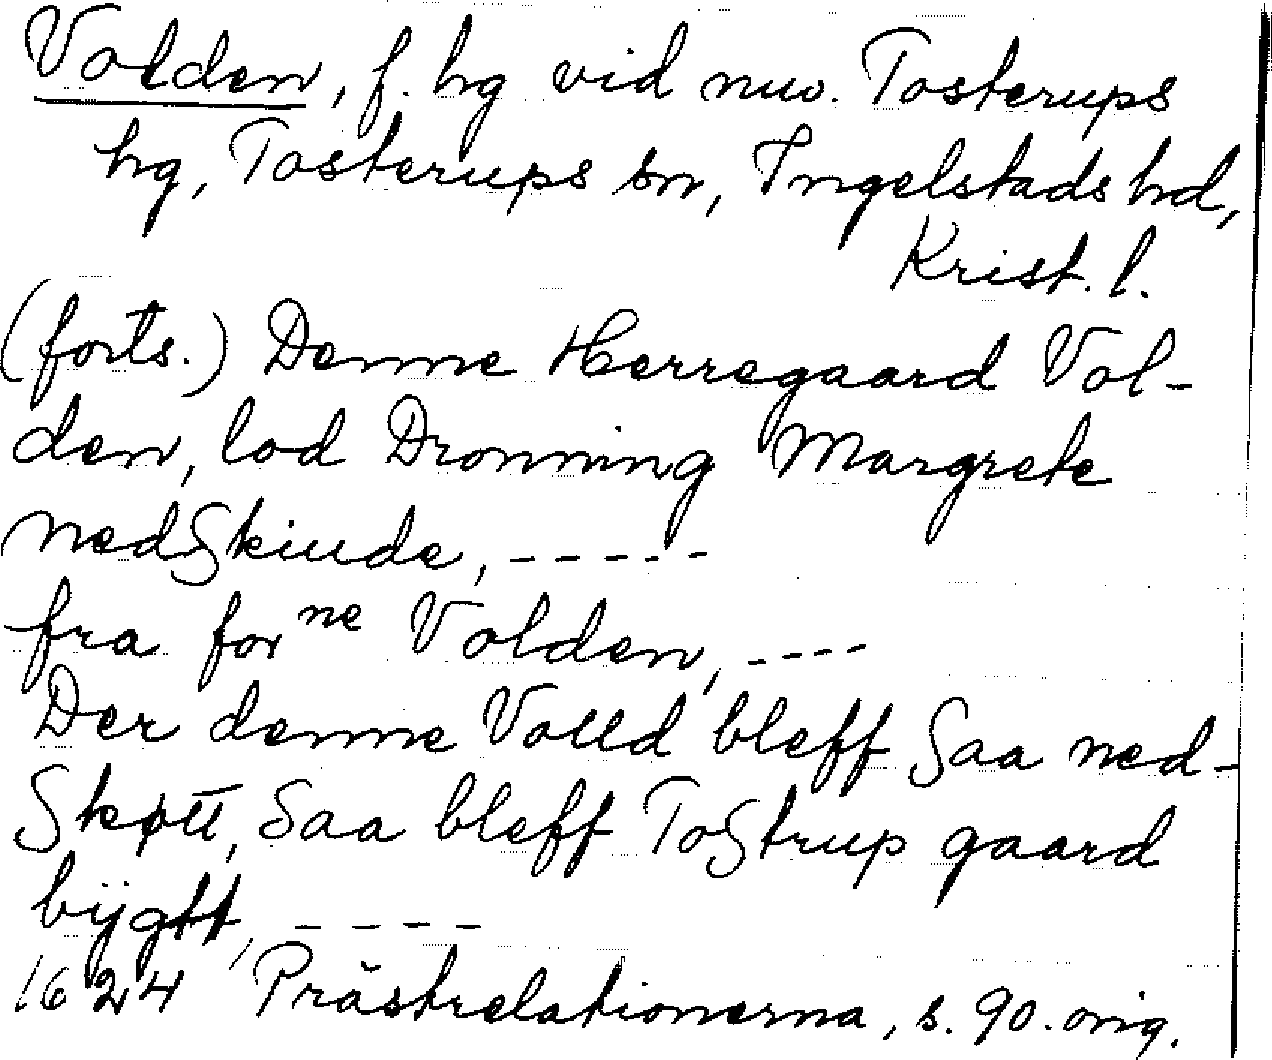 Volden, f. hg vid nuv. Tosterups
hg, Tosterups sn, Ingelstads hd,
Krist. l.
(forts.) Denne Herregaard Vol-
den, lod Dronning Margrete
nedSkiude, -----
fra for ne Volden, ----
Der denne Volld bleff Saa ned-
Skøtt, Saa bleff ToStrup gaard
bÿgtt, ----
1624 Prästrelationerna, s. 90. orig.